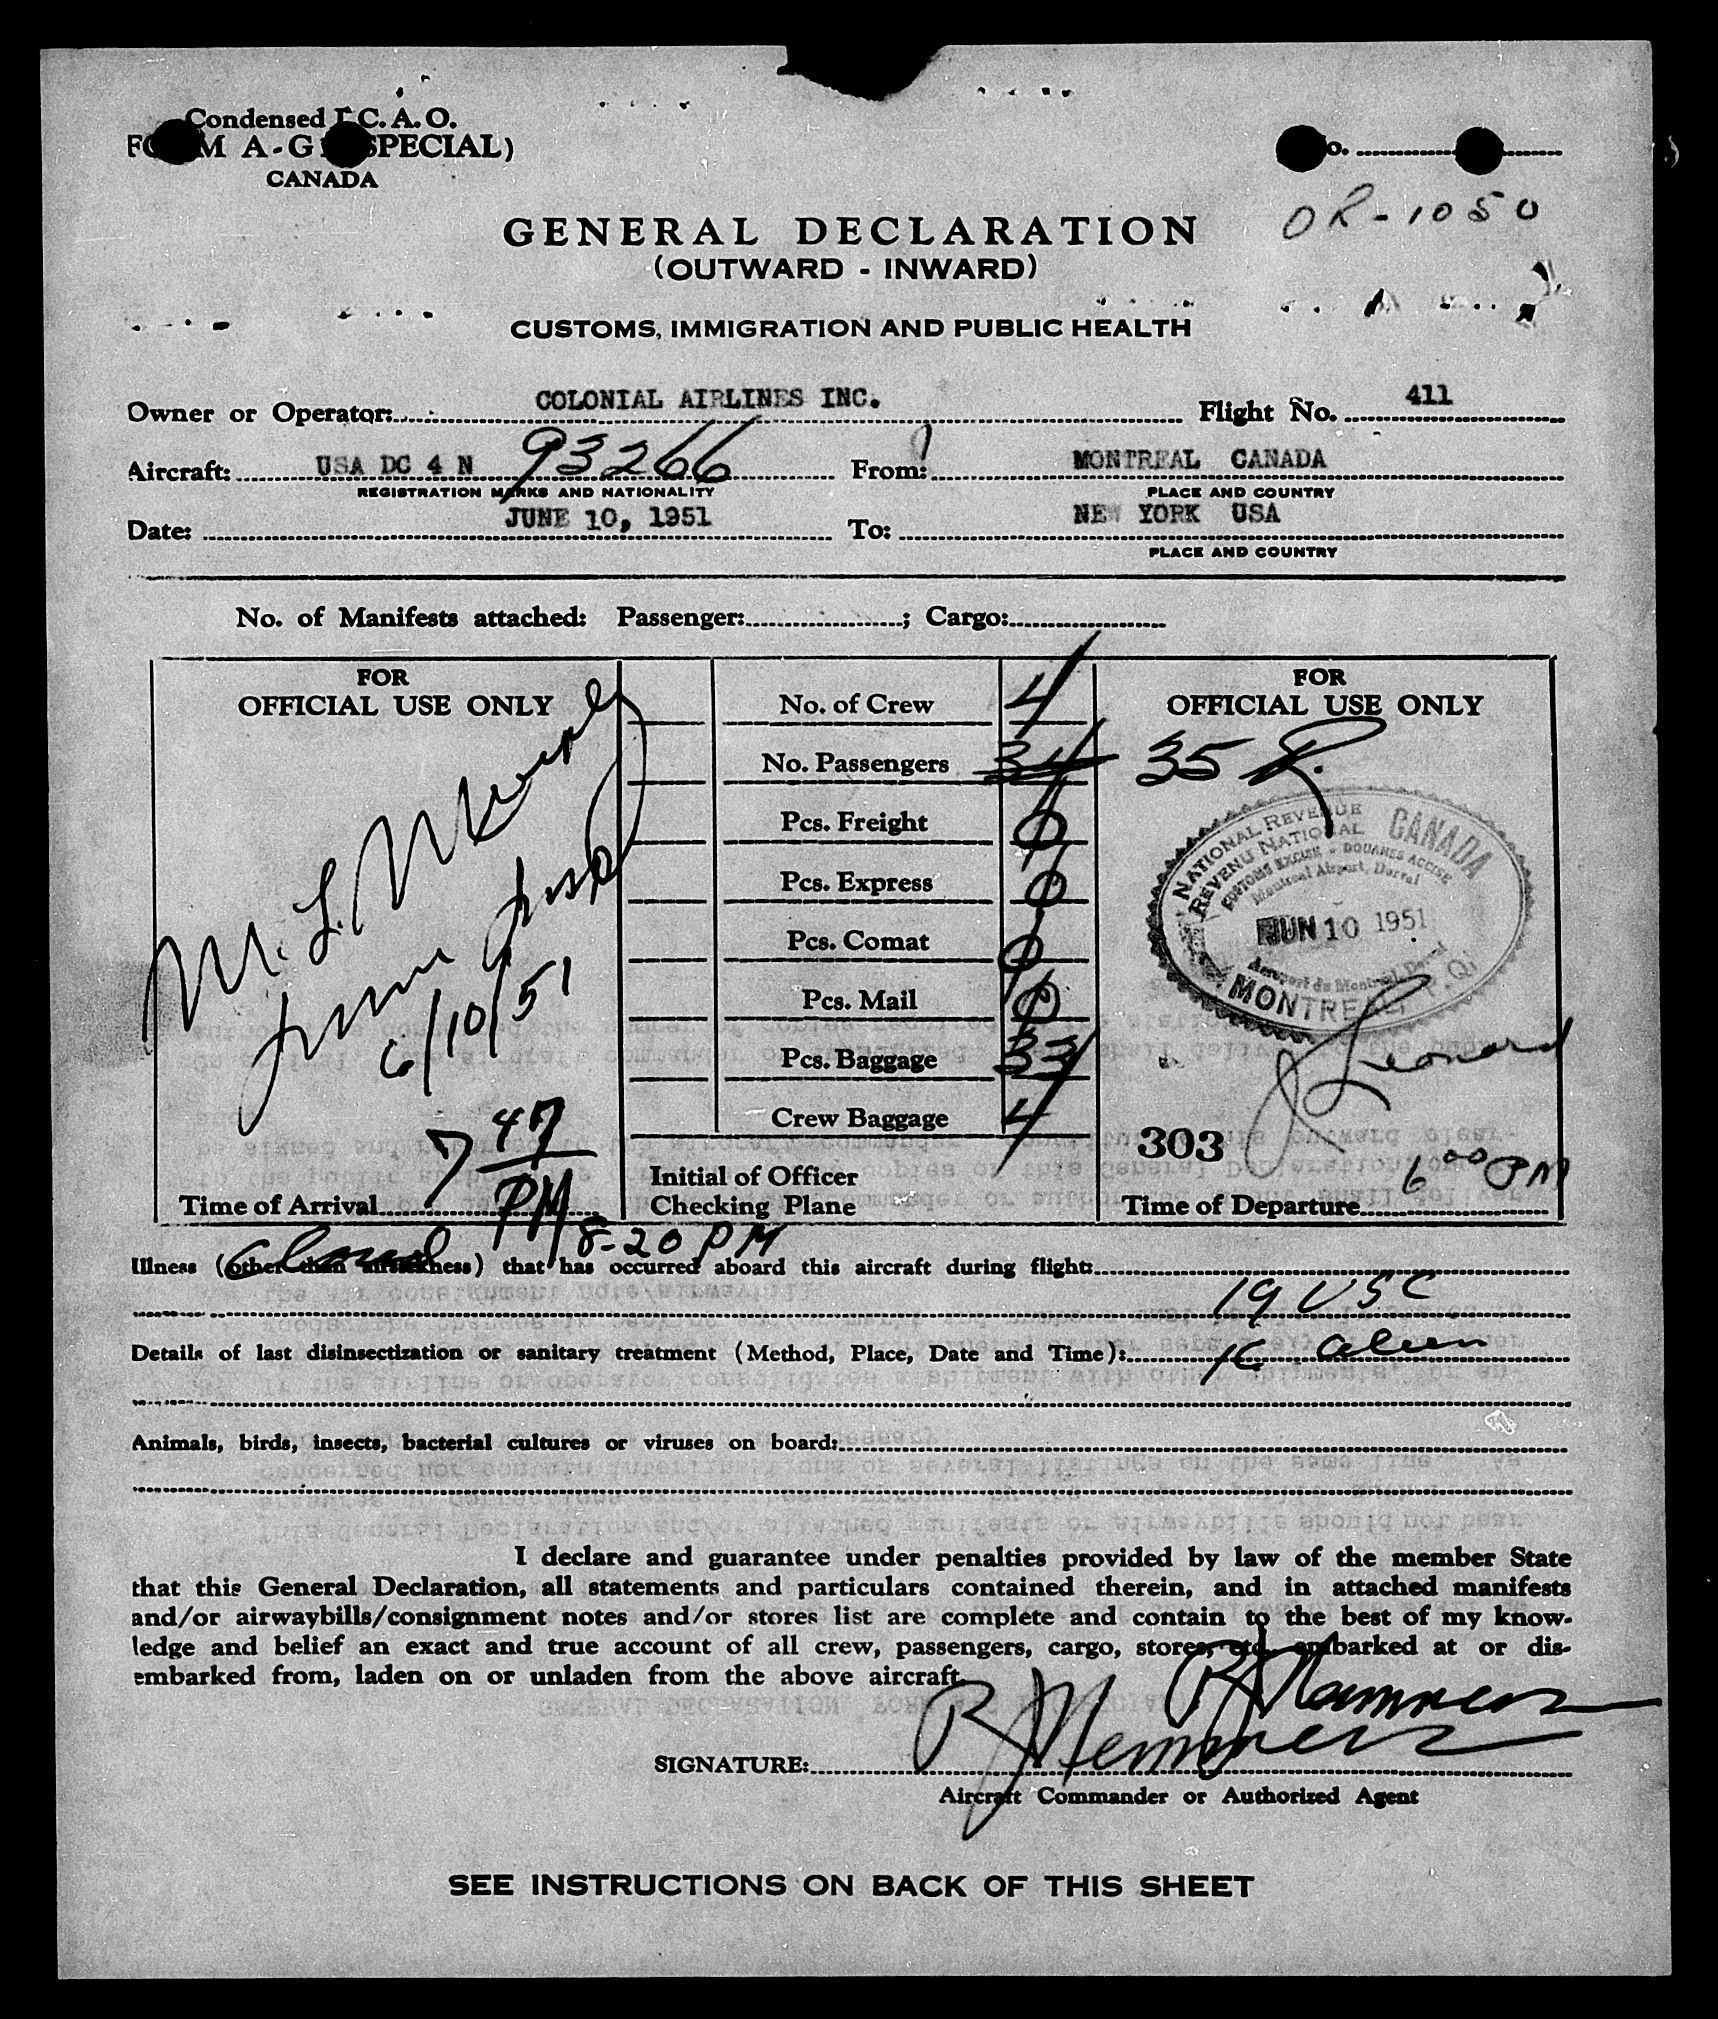 Condensed I.C.A.O.
FORM A-G (SPECIAL)
CANADA
No.
OR-1050
GENERAL DECLARATION
(OUTWARD - INWARD)
CUSTOMS, IMMIGRATION AND PUBLIC HEALTH
Owner or Operator: COLONIAL AIRLINES INC. Flight No. 411
Aircraft: USA DC 4 N 93266 From: MONTREAL CANADA
REGISTRATION MARKS AND NATIONALITY PLACE AND COUNTRY
Date: JUNE 10, 1951 To: NEW YORK USA
PLACE AND COUNTRY
No. of Manifests attached: Passenger: ; Cargo:
FOR
OFFICIAL USE ONLY
M. L.
6/10/51
7 47 PM
Time of Arrival
No. of Crew 4
No. Passengers 34
Pcs. Freight 0
Pcs. Express 0
Pcs. Comat 0
Pcs. Mail 0
Pcs. Baggage 33
Crew Baggage 4
Initial of Officer
Checking Plane
FOR
OFFICIAL USE ONLY
35
NATIONAL REVENUE CANADA
REVENU NATIONAL
CUSTOMS EXCISE - DOUANES ACCISE
Montreal Airport, Dorval
JUN 10 1951
Aeroport de Montreal, Dorval
MONTREAL, P. Q.
J Leonard
303
6 00 PM
Time of Departure
8-20 PM
Illness (other than airsickness) that has occurred aboard this aircraft during flight:
19 USC
Details of last disinsectization or sanitary treatment (Method, Place, Date and Time): 16 alien
Animals, birds, insects, bacterial cultures or viruses on board:
I declare and guarantee under penalties provided by law of the member State
that this General Declaration, all statements and particulars contained therein, and in attached manifests
and/or airwaybills/consignment notes and/or stores list are complete and contain to the best of my know-
ledge and belief an exact and true account of all crew, passengers, cargo, stores, etc. embarked at or dis-
embarked from, laden on or unladen from the above aircraft.
SIGNATURE:
Aircraft Commander or Authorized Agent
SEE INSTRUCTIONS ON BACK OF THIS SHEET